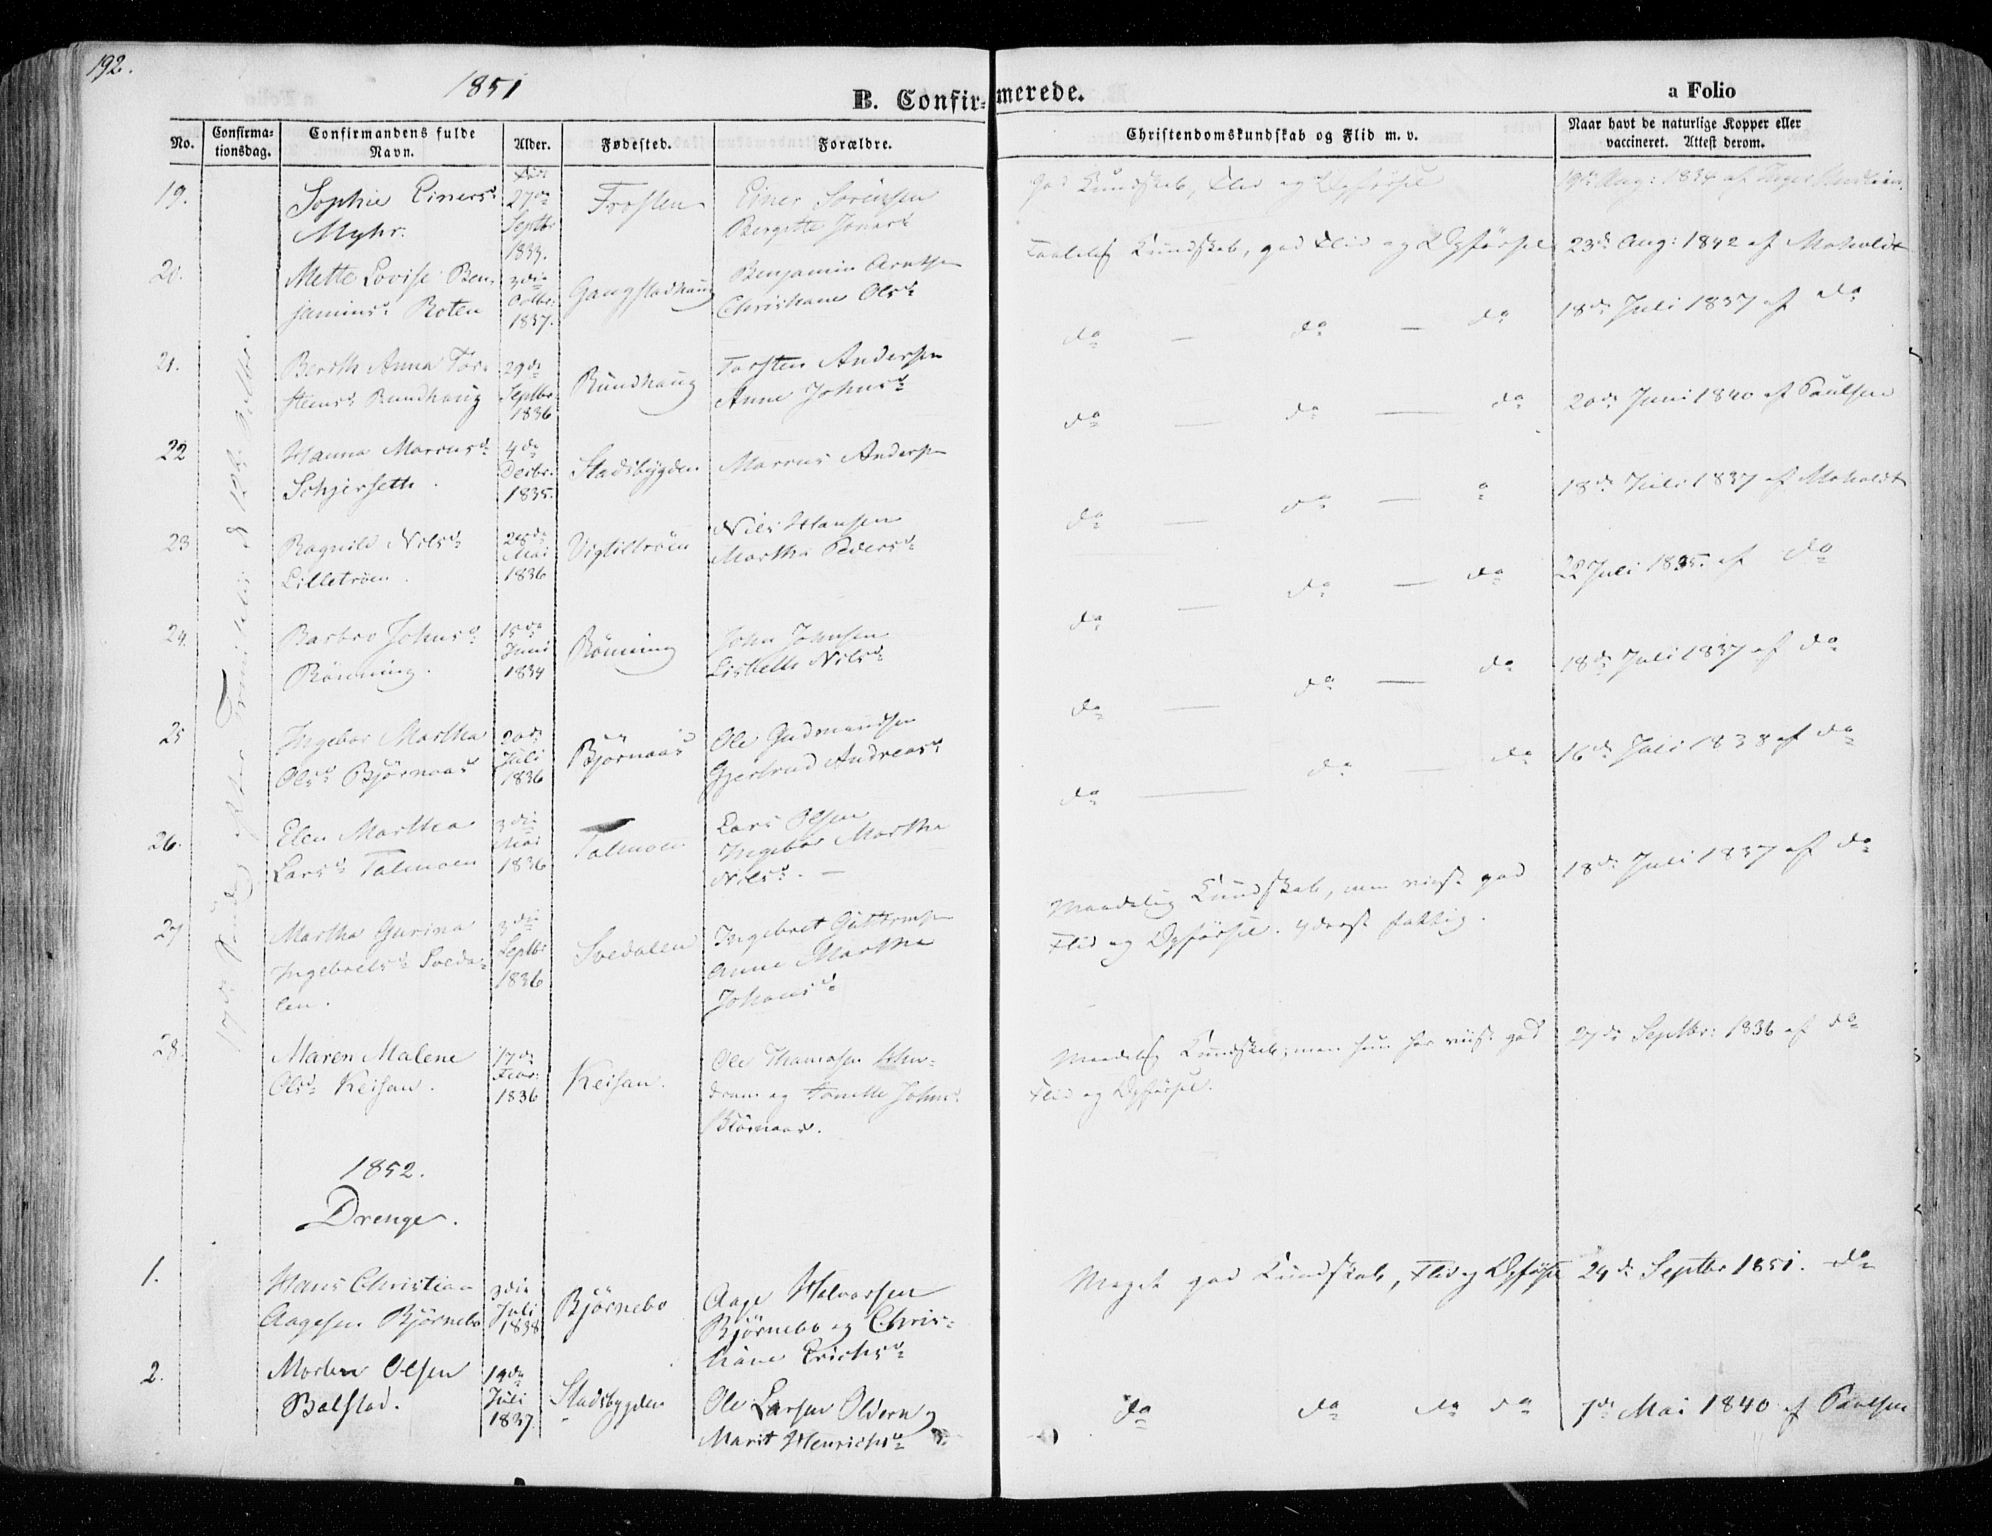 192.
1851
B. Confirmerede.
a Folio
No.
Confirma-
tionsdag.
Confirmandens fulde
Navn.
Alder.
Fødested.
Forældre.
Christendomskundskab og Flid m. v.
Naar havt de naturlige Kopper eller
vaccineret. Attest derom.
19.
Sophie Einersd.
Myhr.
27de
Septbr
1833.
Frosten
Einer Sørensen
Bergitte Jonasd
god Kundskab, Flid og Opførsel
19de Aug: 1834 af
20.
Mette Lovise Ben-
jaminsd. Roten
3die
Octbr:
1837.
Gangstadhaug
Benjamin Arntsen
Christiane Olsd.
Taalelig Kundskab, god Flid og Opførsel
23de Aug: 1842 af Moholdt
21.
Bereth Anna Tor-
steensd. Rundhaug
29de
Septbr
1836
Rundhaug
Torsten Andersen
Anne Johnsd.
do — do — do
18de Juli 1837 af do
22
Hanna Marcusd.
Schjerseth.
4de
Decbr.
1835.
Stadsbygden
Marcus Andersen
do — do — do
20de Juni 1840 af Paulsen
23
Ragnild Nilsd.
Lilletrøen.
28de
Mai
1836
Vigtiltrøen
Nils Hansen
Martha Pedersd.
do — do —
18de Juli 1837 af Moholdt
24.
Barbro Johnsd.
Rønning.
15de
Juni
1834
Rønning
John Johnsen
Lisbeth Nilsd.
do — do — do
22 Juli 1835 af do
25
Ingebor Martha
Olsd. Bjørnaas
20de
Juli
1836
Bjørnaas
Ole Gudmundsen
Gjertrud Andreasd.
do — do — do
18de Juli 1837 af do
26.
Elen Martha
Larsd. Talmoen
3die
Mai
1836
Talmoen
Lars Olsen
Ingebor Martha
Nilsd. —
do — do — do
16de Juli 1838 af do
27
Martha Gurina
Ingebretsd. Sveda-
len.
3die
Septbr
1836
Svedalen
Ingebret Guttormsen
Anne Martha
Johansd.
Maadelig Kundskab, men viist god
Flid og Opførsel. yderst fattig.
18de Juli 1837 af do
28.
Maren Malene
Olsd. Keisan.
17de
Febr:
1836
Keisan.
Ole Thomasen
og Tonette Johnsd.
Bjørnaas.
Maadelig Kundskab; men hun har viist god
Flid og Opførsel.
27de Septbr: 1836 af do
1852.
Drenge.
1.
Hans Christian
Aagesen Bjørnebo
3die
Juli
1838
Bjørnebo
Aage Halvorsen
Bjørnebo og Chris-
tiane Erichsd.
Meget god Kundskab, Flid og Opførsel
24de Septbr 1851. do
2.
Morten Olsen
Balstad.
19de
Juli
1837.
Stadsbygden
Ole Larsen Oldern og
Marit Henrichsd.
do do do do
7de Mai 1840 af Paulsen